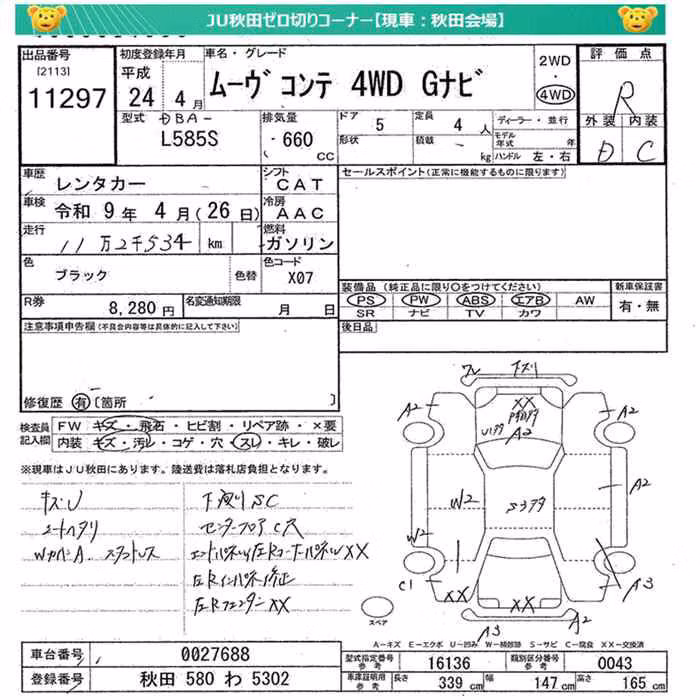 JU秋田ゼロ切りコーナー【現車：秋田会場】
出品番号
[2113]
11297
初度登録年月
平成
24 4月
車名・グレード
ムーヴ コンテ 4WD Gナビ
2WD
・
4WD
評価点
R
外装 内装
D C
型式 DBA-
L585S
排気量
660
CC
ドア 5
形状
定員 4 人
積載 kg
ディーラー・並行
モデル年式 年
ハンドル 左・右
車歴 レンタカー
車検 令和 9年 4月(26日)
走行 11万2千534 km
シフト CAT
冷房 AAC
燃料 ガソリン
色 ブラック 色替
色コード X07
R券 8,280円 名変通知期限 月 日
セールスポイント(正常に機能するものに限ります)
装備品(純正品に限り○をつけてください)
PS PW ABS エアB AW
SR ナビ TV カワ
新車保証書
有・無
後日品
注意事項申告欄(不具合内容等は具体的に記入して下さい)
修復歴 有 〔箇所 〕
検査員記入欄
FW キズ・飛石・ヒビ割・リペア跡・×要
内装 キズ・汚レ・コゲ・穴・スレ・キレ・破レ
※現車はJU秋田にあります。陸送費は落札店負担となります。
キズU
シートヘタリ
WカバーA スタットレス
下廻りSC
センターフロアCス
エンドパネル/左RコーナーパネルXX
左Rインパネ修正
左RフェンダーXX
ワレ
下ズリ
XX
A2
A2
A2
A2
W2
W2
C1
A3
XX
XX
A3
A2
スペア
A－キズ E－エクボ U－凹み W－補修跡 S－サビ C－腐食 XX－交換済
車台番号 0027688
登録番号 秋田 580 わ 5302
型式指定番号 参考 16136
類別区分番号 参考 0043
車庫証明用 参考 長さ 339 cm 幅 147 cm 高さ 165 cm